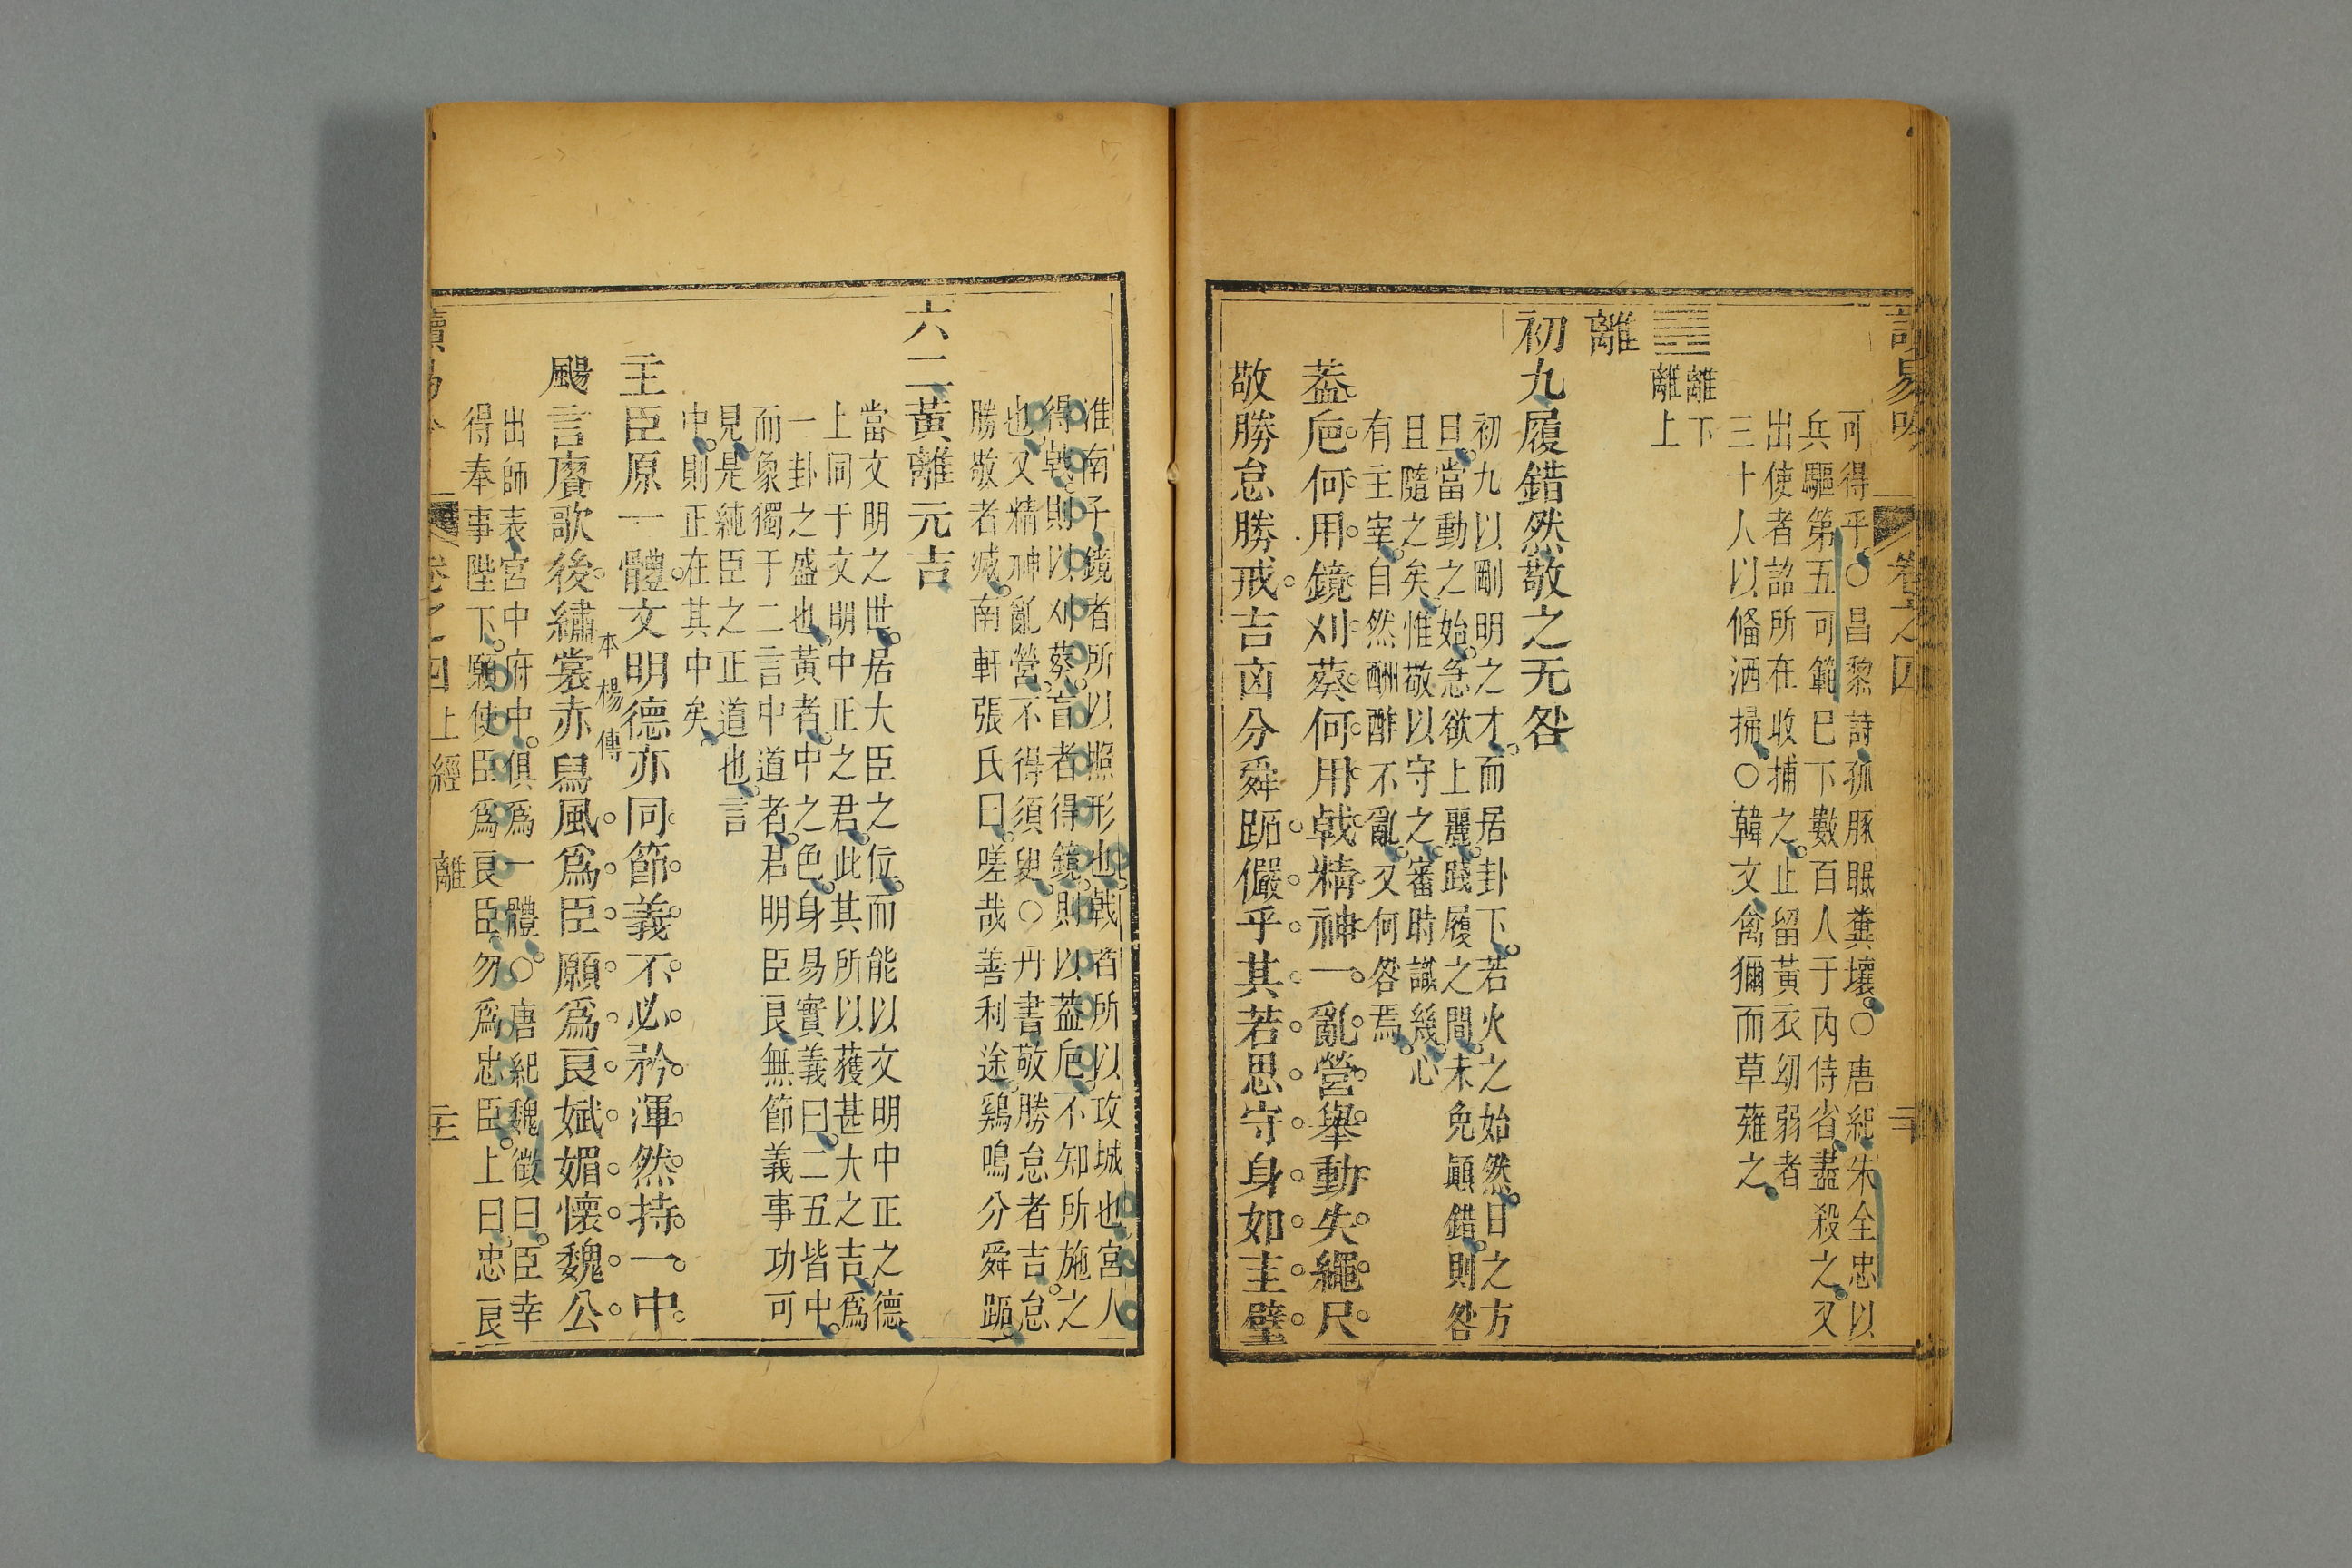 可得乎○昌黎詩孤豚眠糞壤○唐紀朱全忠以
兵驅第五可範已下數百人于內侍省盡殺之又
出使者詔所在收捕之止留黃衣幼弱者
三十人以偹洒掃○韓文禽獮而草薙之
離下
離上
離
初九履錯然敬之无咎
初九以剛明之才而居卦下若火之始然日之方
旦當動之始急欲上麗踐履之間未免顚錯則咎
且隨之矣惟敬以守之審時識幾心
有主宰自然酬酢不亂又何咎焉
葢巵何用鏡刈葵何用戟精神一亂營舉動失繩尺
敬勝怠勝戒吉凶分舜跖儼乎其若思守身如圭璧
淮南子鏡者所以照形也戟者所以攻城也宮人
得戟則以刈葵盲者得鏡則以葢巵不知所施之
也又精神亂營不得須臾○丹書敬勝怠者吉怠
勝敬者滅南軒張氏曰嗟哉善利途鷄鳴分舜跖
六二黃離元吉
當文明之世居大臣之位而能以文明中正之德
上同于文明中正之君此其所以獲甚大之吉爲
一卦之盛也黃者中之色身易實義曰二五皆中
而象獨于二言中道者君明臣良無節義事功可
見是純臣之正道也言
中則正在其中矣
主臣原一體文明德亦同節義不必矜渾然持一中
颺言賡歌後繡裳赤舄風爲臣願爲良娬媚懷魏公
本楊傳
出師表宮中府中俱爲一體○唐紀魏徵曰臣幸
得奉事陛下願使臣爲良臣勿爲忠臣上曰忠良
卷之四 上經 離